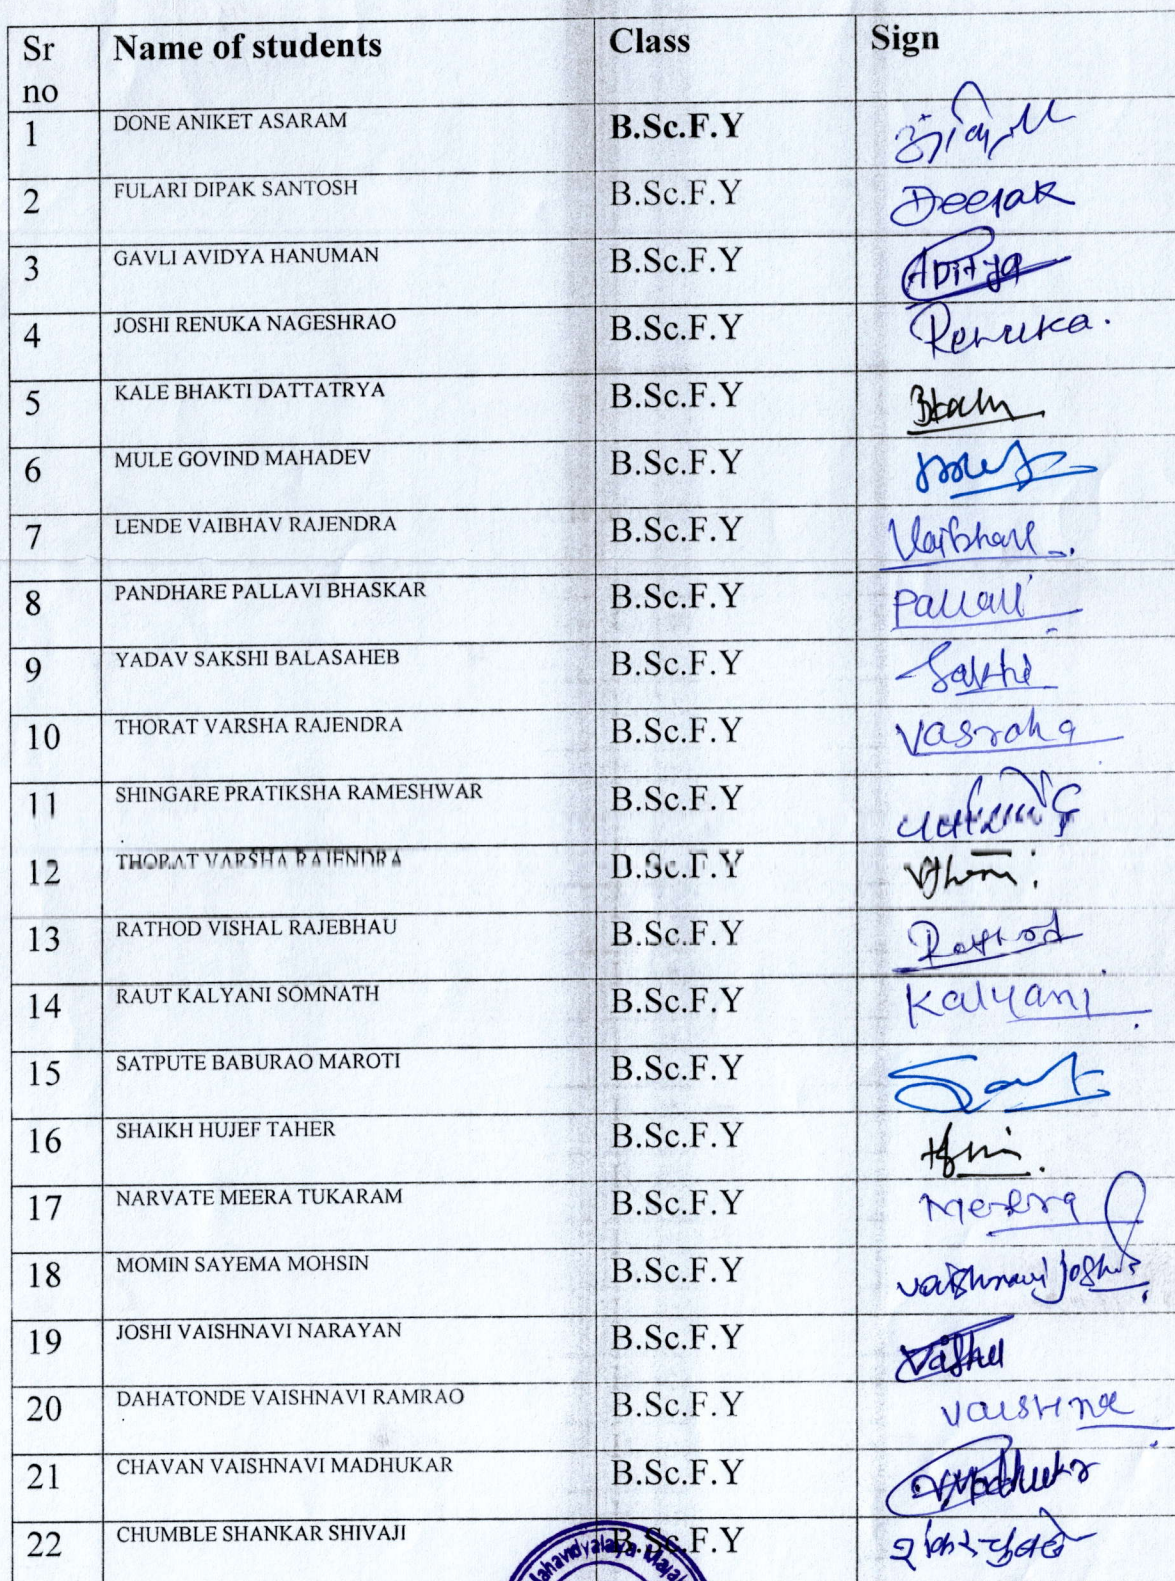 Sr no Name of students Class Sign
1 DONE ANIKET ASARAM B.Sc.F.Y
2 FULARI DIPAK SANTOSH B.Sc.F.Y Deepak
3 GAVLI AVIDYA HANUMAN B.Sc.F.Y
4 JOSHI RENUKA NAGESHRAO B.Sc.F.Y Renuka.
5 KALE BHAKTI DATTATRYA B.Sc.F.Y
6 MULE GOVIND MAHADEV B.Sc.F.Y
7 LENDE VAIBHAV RAJENDRA B.Sc.F.Y Vaibhav
8 PANDHARE PALLAVI BHASKAR B.Sc.F.Y Pallavi
9 YADAV SAKSHI BALASAHEB B.Sc.F.Y
10 THORAT VARSHA RAJENDRA B.Sc.F.Y
11 SHINGARE PRATIKSHA RAMESHWAR B.Sc.F.Y
12 THORAT VARSHA RAJENDRA B.Sc.F.Y
13 RATHOD VISHAL RAJEBHAU B.Sc.F.Y Rathod
14 RAUT KALYANI SOMNATH B.Sc.F.Y Kalyani
15 SATPUTE BABURAO MAROTI B.Sc.F.Y
16 SHAIKH HUJEF TAHER B.Sc.F.Y
17 NARVATE MEERA TUKARAM B.Sc.F.Y
18 MOMIN SAYEMA MOHSIN B.Sc.F.Y vaishnavi Joshi
19 JOSHI VAISHNAVI NARAYAN B.Sc.F.Y
20 DAHATONDE VAISHNAVI RAMRAO B.Sc.F.Y
21 CHAVAN VAISHNAVI MADHUKAR B.Sc.F.Y
22 CHUMBLE SHANKAR SHIVAJI B.Sc.F.Y